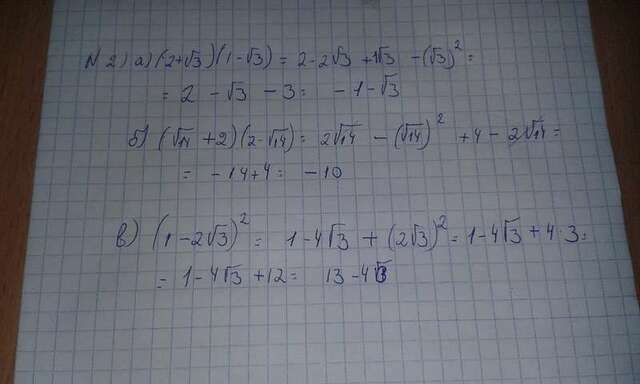 N 2) а) (2+√3)(1-√3) = 2-2√3 +1√3 -(√3)² =
= 2 - √3 - 3 = -1-√3
б) (√14 +2)(2-√14) = 2√14 - (√14)² +4 - 2√14 =
= -14+4 = -10
в) (1-2√3)² = 1-4√3 + (2√3)² = 1-4√3 + 4·3 =
= 1-4√3 +12 = 13-4√3